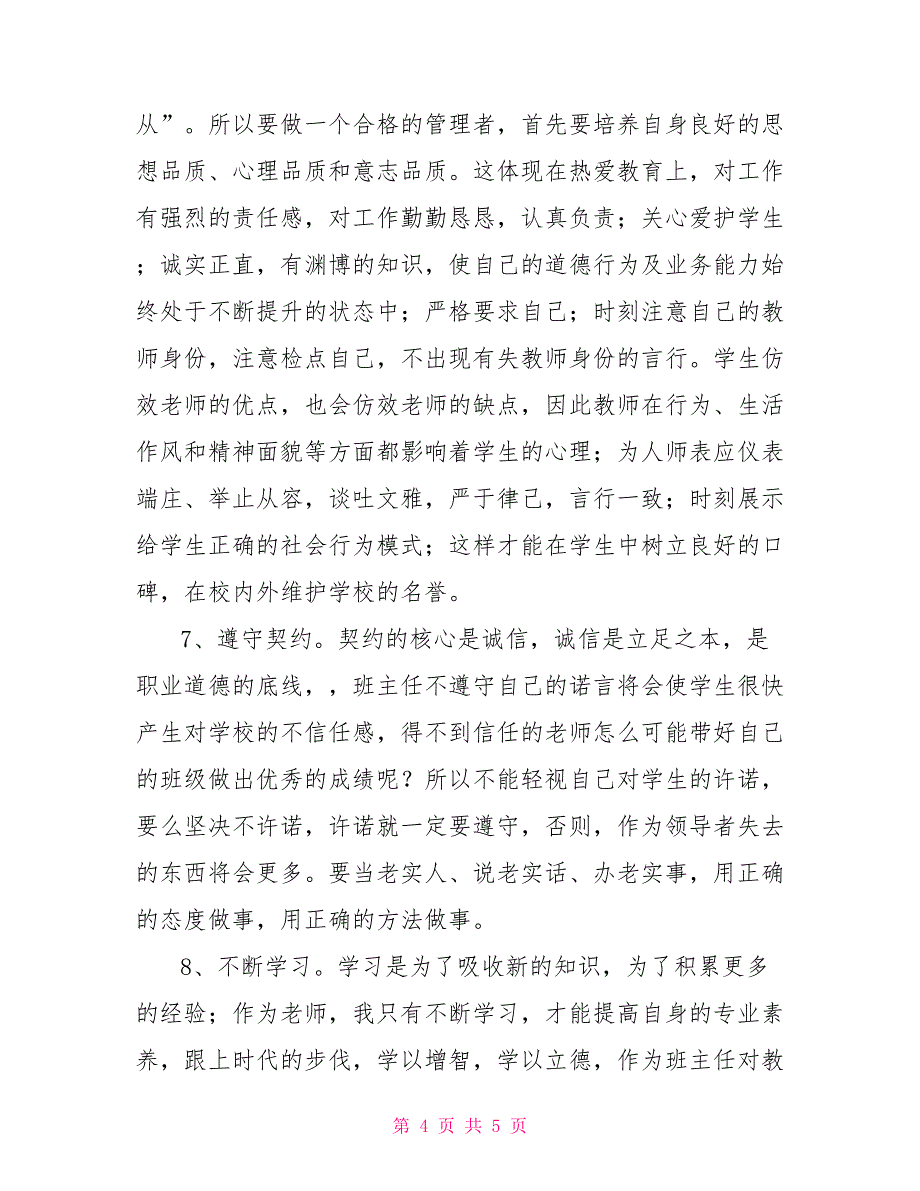 从”。所以要做一个合格的管理者，首先要培养自身良好的思
想品质、心理品质和意志品质。这体现在热爱教育上，对工作
有强烈的责任感，对工作勤勤恳恳，认真负责；关心爱护学生
；诚实正直，有渊博的知识，使自己的道德行为及业务能力始
终处于不断提升的状态中；严格要求自己；时刻注意自己的教
师身份，注意检点自己，不出现有失教师身份的言行。学生仿
效老师的优点，也会仿效老师的缺点，因此教师在行为、生活
作风和精神面貌等方面都影响着学生的心理；为人师表应仪表
端庄、举止从容，谈吐文雅，严于律己，言行一致；时刻展示
给学生正确的社会行为模式；这样才能在学生中树立良好的口
碑，在校内外维护学校的名誉。
7、遵守契约。契约的核心是诚信，诚信是立足之本，是
职业道德的底线，，班主任不遵守自己的诺言将会使学生很快
产生对学校的不信任感，得不到信任的老师怎么可能带好自己
的班级做出优秀的成绩呢？所以不能轻视自己对学生的许诺，
要么坚决不许诺，许诺就一定要遵守，否则，作为领导者失去
的东西将会更多。要当老实人、说老实话、办老实事，用正确
的态度做事，用正确的方法做事。
8、不断学习。学习是为了吸收新的知识，为了积累更多
的经验；作为老师，我只有不断学习，才能提高自身的专业素
养，跟上时代的步伐，学以增智，学以立德，作为班主任对教
第 4 页 共 5 页